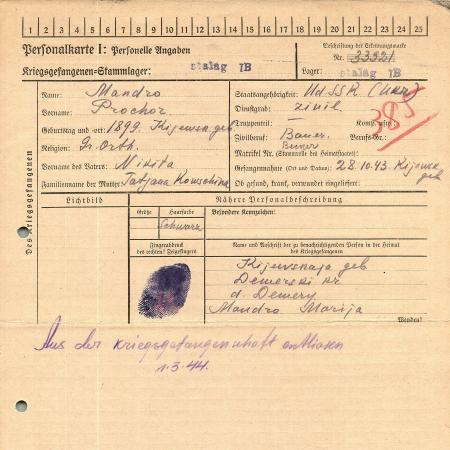 1 2 3 4 5 6 7 8 9 10 11 12 13 14 15 16 17 18 19 20 21 22 23 24 25
Personalkarte I: Personelle Angaben
Kriegsgefangenen-Stammlager: Stalag 7B
Beschriftung der Erkennungsmarke
Nr. 33521
Lager: Stalag 7B
Des Kriegsgefangenen
Name: Mandro
Vorname: Prochor
Geburtstag und -ort: 1899. Kijewska geb.
Religion: Gr. Orth.
Vorname des Vaters: Nikita
Familienname der Mutter: Tatjana
Staatsangehörigkeit: UdSSR (Ukr)
Dienstgrad: zivil
Truppenteil: – Komp. usw.:
Zivilberuf: Bauer Berufs-Gr.:
Matrikel Nr. (Stammrolle des Heimatstaates):
Gefangennahme (Ort und Datum): 28.10.43. Kijewska geb
Ob gesund, krank, verwundet eingeliefert:
385
Lichtbild
Nähere Personalbeschreibung
Größe
Haarfarbe
Schwarz
Besondere Kennzeichen:
Fingerabdruck
des rechten! Zeigefingers
Name und Anschrift der zu benachrichtigenden Person in der Heimat
des Kriegsgefangenen
Kijewskaja geb
Demerski
d. Demery
Mandro Marija
Wenden!
Aus der Kriegsgefangenschaft entlassen
1.3.44.